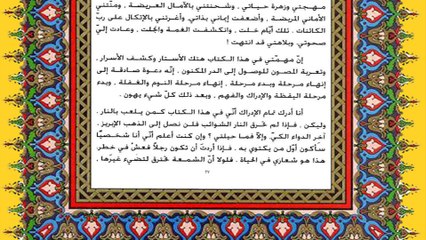 مهجتي وزهرة حياتي، وشحنتني بالآمال العريضة، ومنّتني
الأماني المريضة، وأضعفت إيماني بذاتي، وأغرتني بالإتكال على ربّ
الكائنات. تلك أيّام خلت، وانكشفت الغمة وانجلت، وعادت إليّ
صحوتي، وبلاهتي قد انتهت!
إنّ مهمّتي في هذا الكتاب هتك الأستار وكشف الأسرار،
وتعرية اللصون للوصول إلى الدر المكنون، إنّه دعوة صادقة إلى
إنهاء مرحلة وبدء مرحلة، إنهاء مرحلة النوم والغفلة، وبدء
مرحلة اليقظة والإدراك والفهم، وبعد ذلك كلّ شيء يهون.
أنا أدرك تمام الإدراك أنّي في هذا الكتاب كمن يلعب بالنار،
وليكن، فإذا لم تحرق النار الشوائب فلن نصل إلى الذهب الإبريز،
آخر الدواء الكيّ، وإلّا فما حيلتي؟ وإن كنت أعلم أنّي أنا شخصيًّا
سأكون أوّل من يكتوي به، فإذا أردت أن تكون رجلًا فعش في خطر
هذا هو شعاري في الحياة، فلولا أنّ الشمعة تحرق لتضيء غيرها،
٢٧